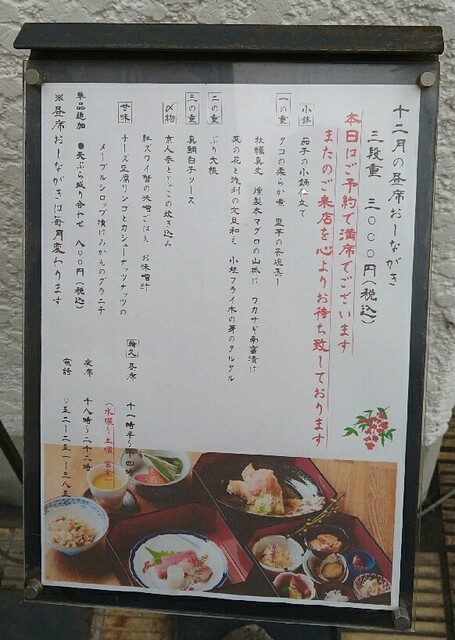 十二月の昼席おしながき
三段重 三〇〇〇円(税込)
本日はご予約で満席でございます
またのご来店を心よりお待ち致しております
小鉢 茄子の小鍋仕立て
一の重 タコの柔らか煮 里芋の茶碗蒸し
牡蠣真丈 燻製本マグロの山掛け ワカサギ南蛮漬け
菜の花と浅利の文旦和え 小柱フライ木の芽のタルタル
二の重 ぶり大根
三の重 真鯛白子ソース
〆物 京人参としらすの炊き込み
紅ズワイ蟹の味噌ごはん お味噌汁
甘味 チーズ豆腐リンゴとカシューナッツの
メープルシロップ漬けみかんのグラニテ
単品追加 ●天ぷら盛り合わせ 八〇〇円(税込)
※昼席おしながきは毎月変わります
昼席 十一時半〜十四時
(水曜〜土曜 営業)
夜席 十八時〜二十二時
電話 〇五二-二五一-三八三